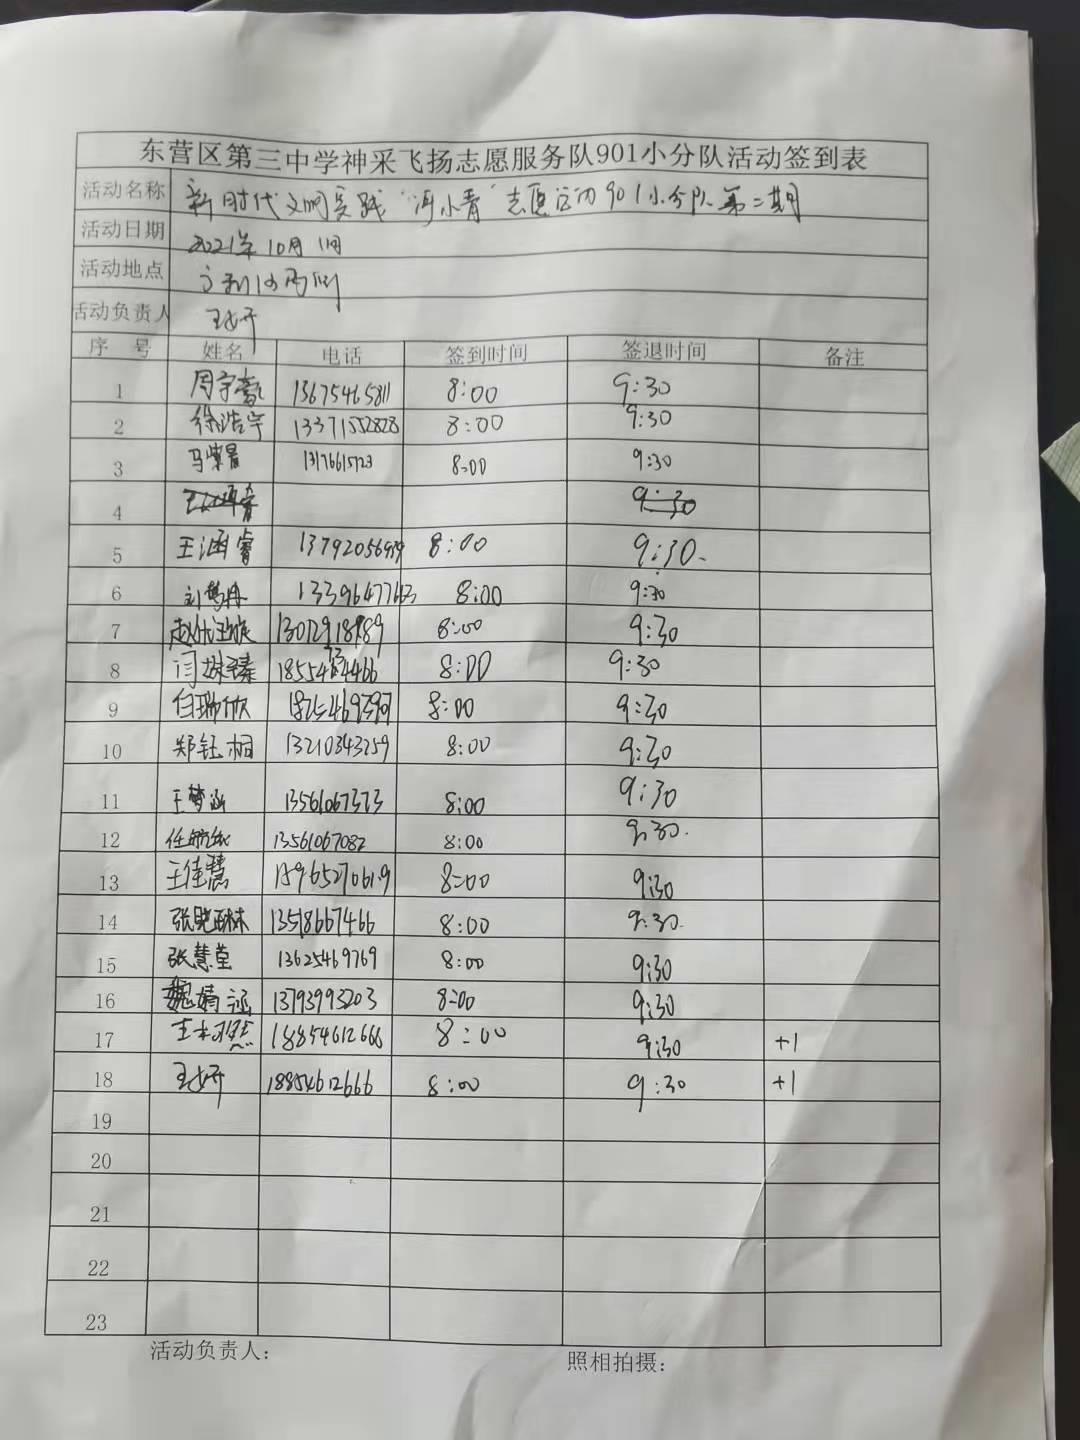 东营区第三中学神采飞扬志愿服务队901小分队活动签到表
活动名称 新时代文明实践“河小青”志愿活动901小分队第二期
活动日期 2021年10月1日
活动地点
活动负责人
序号 姓名 电话 签到时间 签退时间 备注
1 周宇豪 13675465811 8:00 9:30
2 徐浩宇 13371552828 8:00 9:30
3 马紫晨 13176615723 8:00 9:30
4 9:30
5 王涵睿 8:00 9:30
6 13396477663 8:00 9:30
7 8:00 9:30
8 8:00 9:30
9 白瑞欣 8:00 9:30
10 郑钰桐 13210343259 8:00 9:30
11 王梦涵 13561067373 8:00 9:30
12 8:00 9:30
13 王佳慧 15965270619 8:00 9:30
14 张晓琳 13518667466 8:00 9:30
15 张慧莹 13625469769 8:00 9:30
16 魏婧涵 13793993203 8:00 9:30
17 18854612666 8:00 9:30 +1
18 18854612666 8:00 9:30 +1
19
20
21
22
23
活动负责人： 照相拍摄：